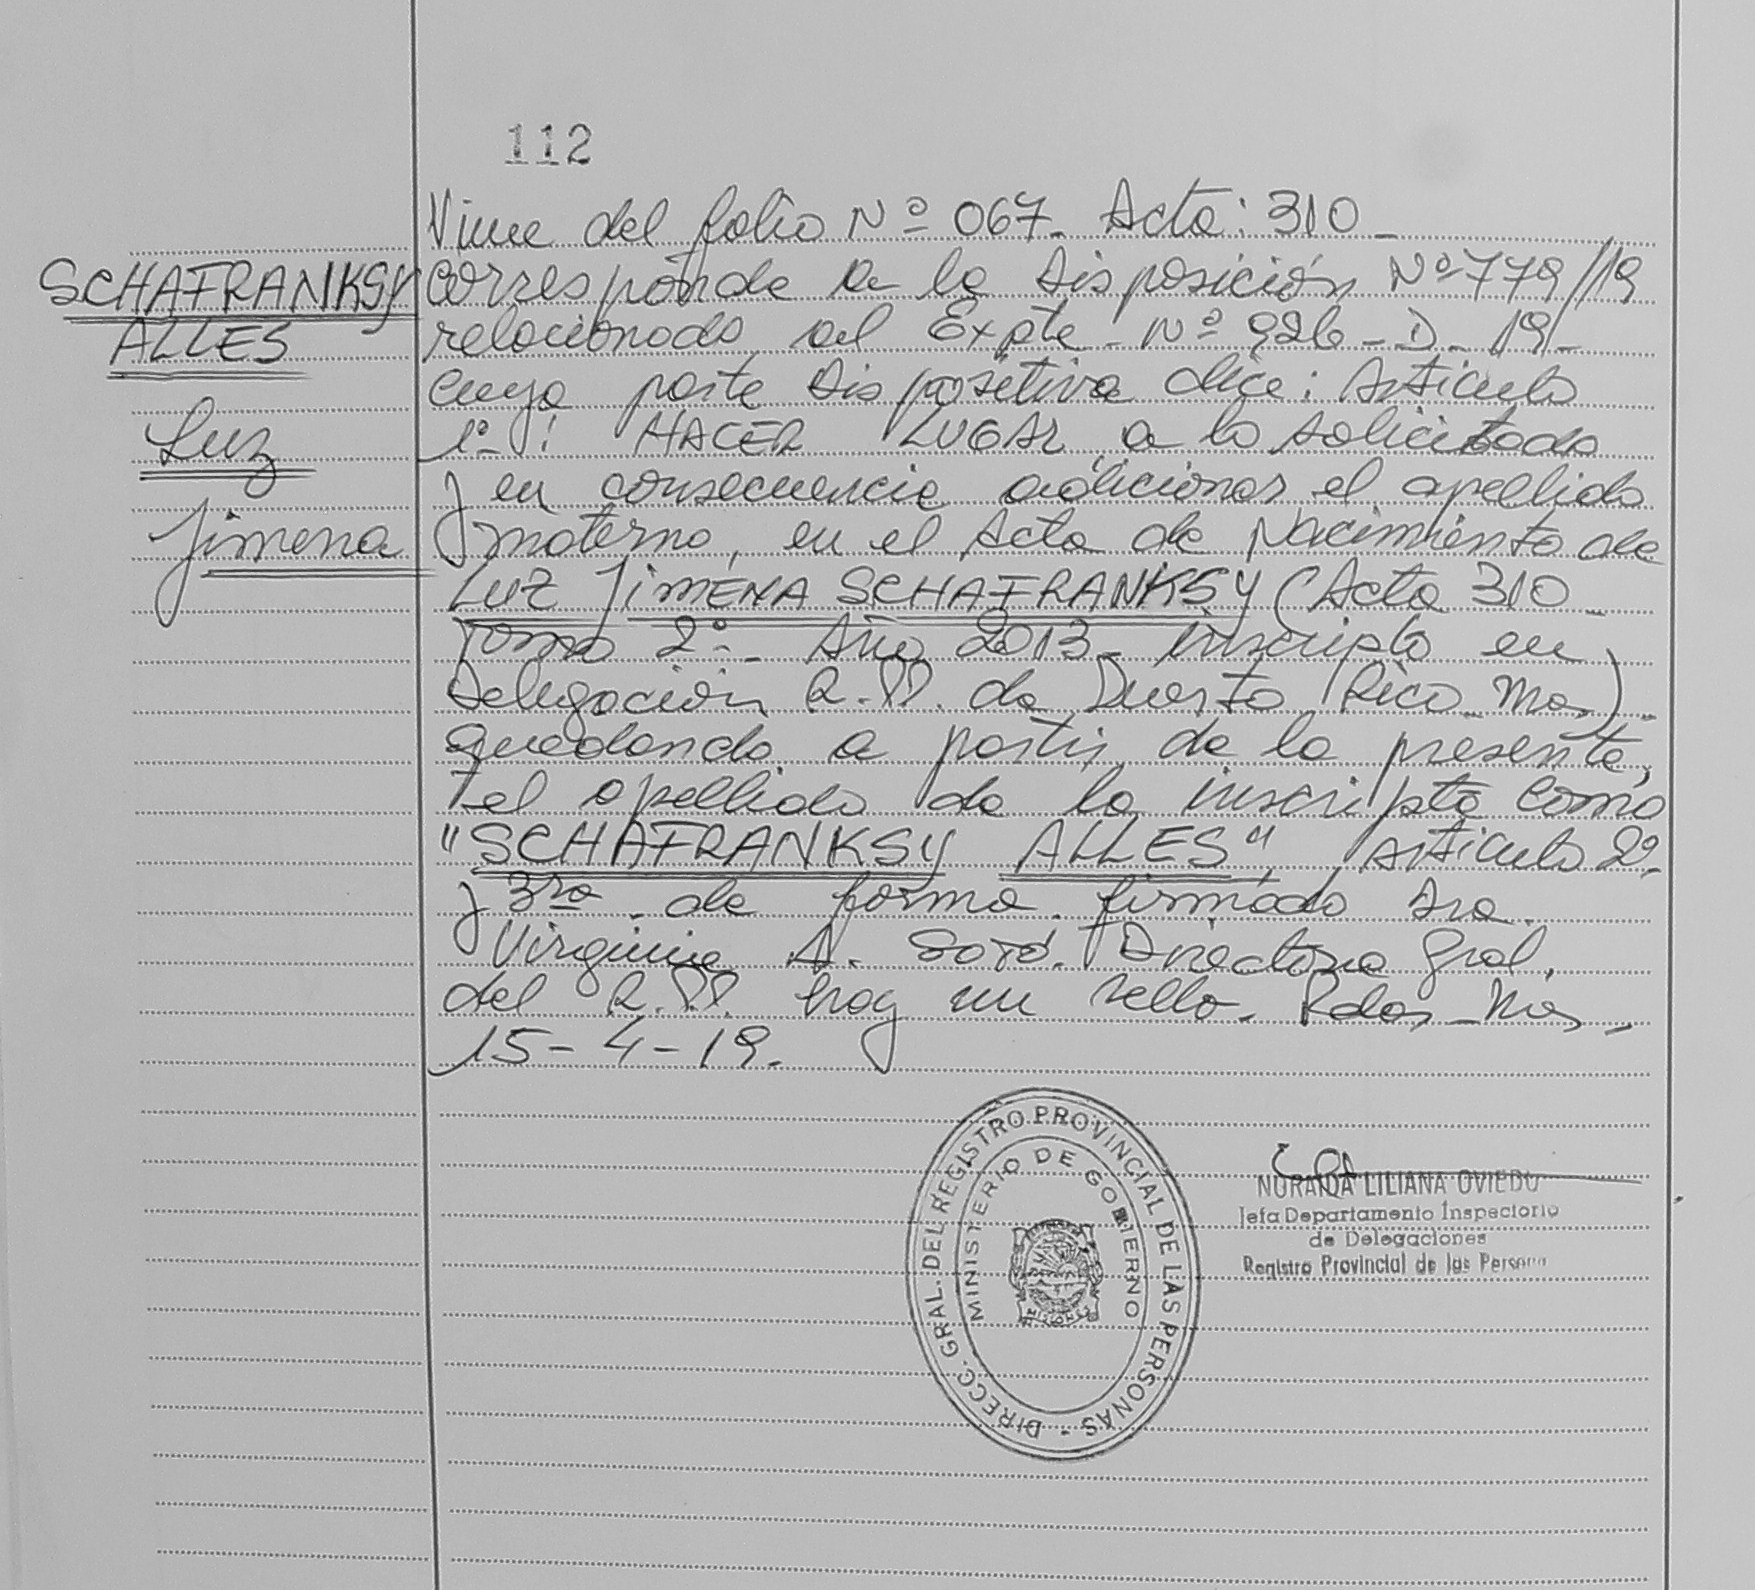 112
Viene del folio Nº 067. Acta: 310 -
SCHAFRANKSY
ALLES
Luz
Jimena
Corresponde a la Disposición Nº 779/19
relacionado al Expte - Nº 926 - D - 19 -
cuya parte Dispositiva dice: Artículo
1º: HACER LUGAR a lo solicitado
y en consecuencia adicionar el apellido
materno, en el Acta de Nacimiento de
LUZ JIMENA SCHAFRANKSY (Acta 310 -
Tomo 2º - Año 2013 - inscripta en
Delegación R.PP. de Puerto Rico - Mnes)
quedando a partir de la presente,
el apellido de la inscripta como
"SCHAFRANKSY ALLES", Artículo 2º -
y 3ro. de forma. firmado Dra.
Virginia A. Directora Gral.
del R.PP. hay un sello - Pdas - Mnes -
15 - 4 - 19.
DIRECC. GRAL. DEL REGISTRO PROVINCIAL DE LAS PERSONAS -
MINISTERIO DE GOBIERNO
MISIONES
LILIANA OVIEDO
Jefa Departamento Inspectorio
de Delegaciones
Registro Provincial de las Persona